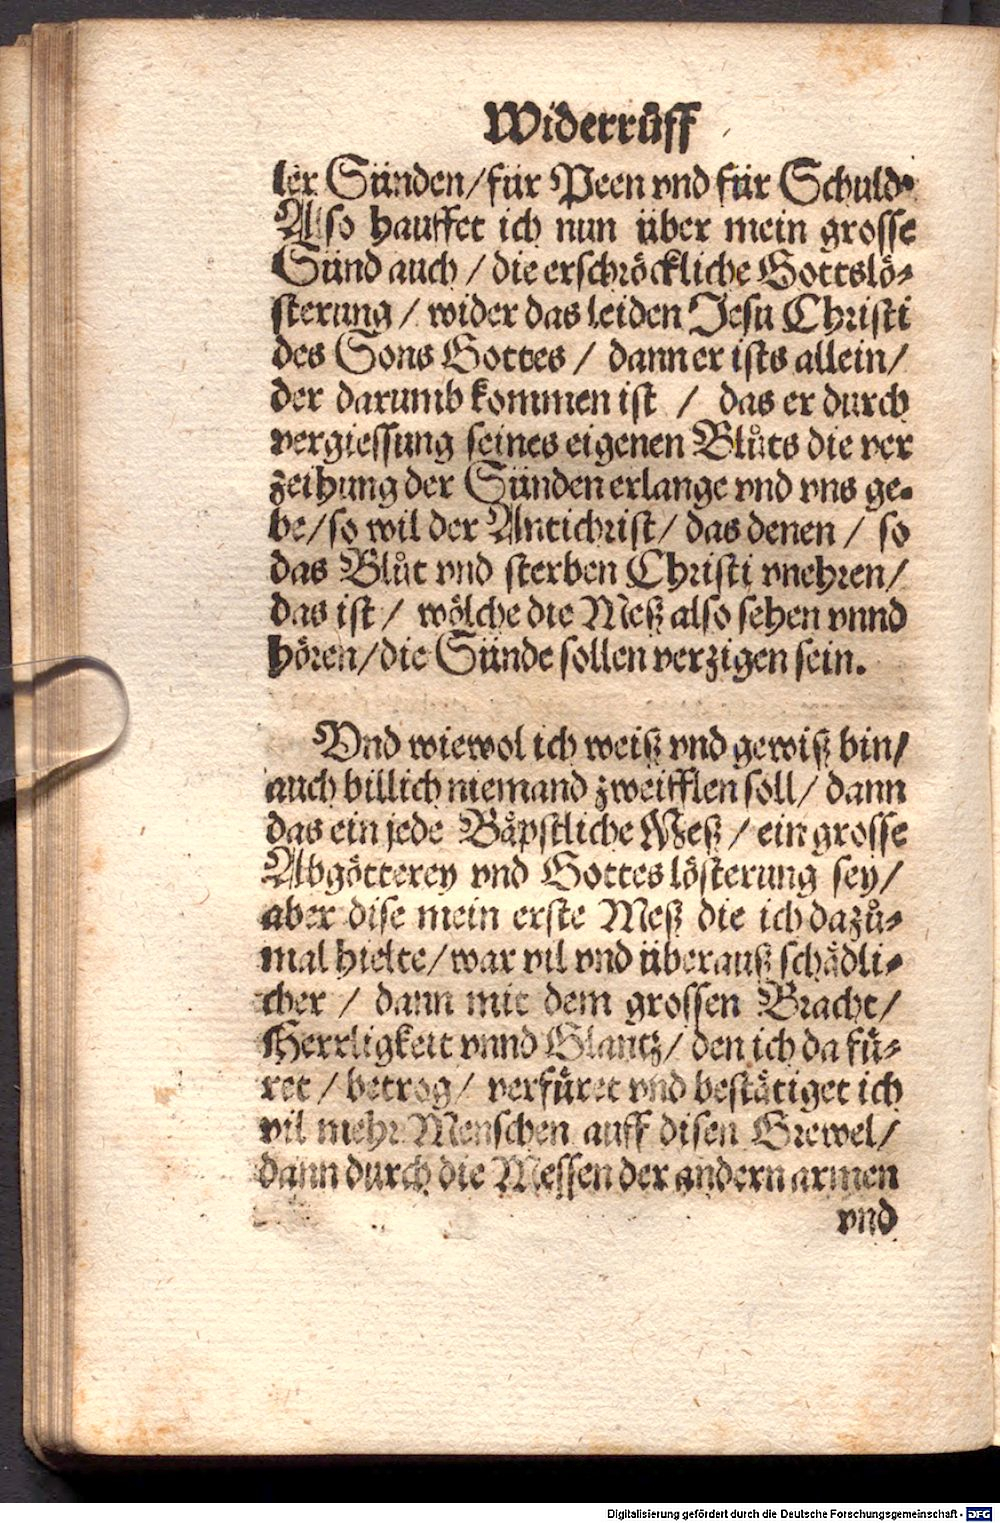 Widerrůff
ler Sünden/für Peen vnd für Schuld.
Also hauffet ich nun über mein grosse
Sünd auch / die erschröckliche Gottslö-
sterung / wider das leiden Jesu Christi
des Sons Gottes / dann er ists allein/
der darumb kommen ist / das er durch
vergiessung seines eigenen Blůts die ver
zeihung der Sünden erlange vnd vns ge-
be/so wil der Antichrist/ das denen / so
das Blůt vnd sterben Christi vnehren/
das ist / wölche die Meß also sehen vnnd
hören/die Sünde sollen verzigen sein.
Vnd wiewol ich weiß vnd gewiß bin/
auch billich niemand zweifflen soll/ dann
das ein jede Bäpstliche Meß / ein grosse
Abgötterey vnd Gottes lösterung sey/
aber dise mein erste Meß die ich dazů-
mal hielte/war vil vnd überauß schädli-
cher / dann mit dem grossen Bracht/
Herrligkeit vnnd Glantz/ den ich da fü-
ret / betrog/ verfüret vnd bestätiget ich
vil mehr Menschen auff disen Grewel/
dann durch die Messen der andern armen
vnd
Digitalisierung gefördert durch die Deutsche Forschungsgemeinschaft - DFG